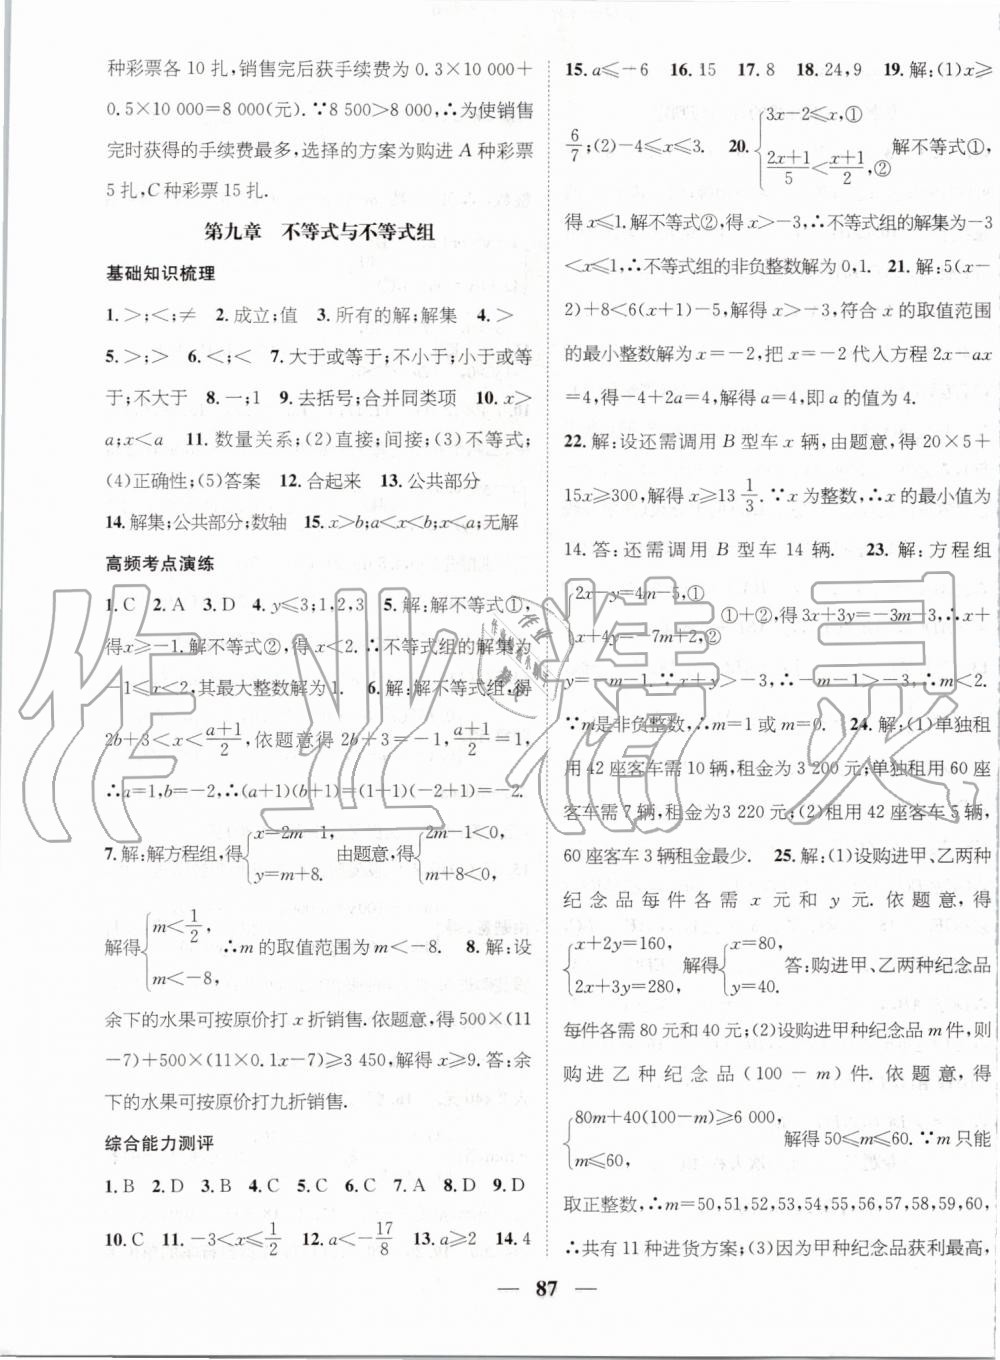 种彩票各 10 扎,销售完后获手续费为 0.3×10 000+
0.5×10 000=8 000(元). ∵8 500>8 000,∴为使销售
完时获得的手续费最多,选择的方案为购进 A 种彩票
5 扎,C 种彩票 15 扎.
第九章 不等式与不等式组
基础知识梳理
1.>;<;≠ 2.成立;值 3.所有的解;解集 4.>
5.>;> 6.<;< 7.大于或等于;不小于;小于或等
于;不大于 8.一;1 9.去括号;合并同类项 10.x>
a;x<a 11.数量关系;(2)直接;间接;(3)不等式;
(4)正确性;(5)答案 12.合起来 13.公共部分
14.解集;公共部分;数轴 15.x>b;a<x<b;x<a;无解
高频考点演练
1.C 2.A 3.D 4.y≤3;1,2,3 5.解:解不等式①,
得x≥-1.解不等式②,得x<2.∴不等式组的解集为
-1≤x<2,其最大整数解为1. 6.解:解不等式组,得
2b+3<x<(a+1)/2,依题意得 2b+3=-1,(a+1)/2=1,
∴a=1,b=-2,∴(a+1)(b+1)=(1+1)(-2+1)=-2.
7.解:解方程组,得{x=2m-1, y=m+8. 由题意,得{2m-1<0, m+8<0.
解得{m<1/2, m<-8. ∴m的取值范围为m<-8. 8.解:设
余下的水果可按原价打 x 折销售.依题意,得 500×(11
-7)+500×(11×0.1x-7)≥3 450,解得 x≥9.答:余
下的水果可按原价打九折销售.
综合能力测评
1.B 2.D 3.B 4.C 5.C 6.C 7.A 8.D 9.D
10.C 11.-3<x≤1/2 12.a<-17/8 13.a≥2 14.4
15.a≤-6 16.15 17.8 18.24,9 19.解:(1)x≥
6/7;(2)-4≤x≤3. 20.{3x-2≤x,① (2x+1)/5<(x+1)/2,② 解不等式①,
得 x≤1.解不等式②,得 x>-3,∴不等式组的解集为-3
<x≤1,∴不等式组的非负整数解为 0,1. 21.解:5(x-
2)+8<6(x+1)-5,解得 x>-3,符合 x 的取值范围
的最小整数解为 x=-2,把 x=-2 代入方程 2x-ax
=4,得-4+2a=4,解得 a=4,即 a 的值为 4.
22.解:设还需调用 B 型车 x 辆,由题意,得 20×5+
15x≥300,解得 x≥13 1/3.∵x 为整数,∴x 的最小值为
14.答:还需调用 B 型车 14 辆. 23.解:方程组
{2x-y=4m-5,① x+4y=-7m+2,② ①+②,得 3x+3y=-3m-3,∴x+
y=-m-1.∵x+y>-3,∴-m-1>-3,∴m<2.
∵m是非负整数,∴m=1 或 m=0. 24.解:(1)单独租
用 42 座客车需 10 辆,租金为 3 200 元;单独租用 60 座
客车需 7 辆,租金为 3 220 元;(2)租用 42 座客车 5 辆,
60 座客车 3 辆租金最少. 25.解:(1)设购进甲、乙两种
纪念品每件各需 x 元和 y 元.依题意,得
{x+2y=160, 2x+3y=280, 解得{x=80, y=40. 答:购进甲、乙两种纪念品
每件各需 80 元和 40 元;(2)设购进甲种纪念品 m 件,则
购进乙种纪念品(100-m)件.依题意,得
{80m+40(100-m)≥6 000, m≤60, 解得 50≤m≤60.∵m 只能
取正整数,∴m=50,51,52,53,54,55,56,57,58,59,60,
∴共有 11 种进货方案;(3)因为甲种纪念品获利最高,
— 87 —
作业精灵